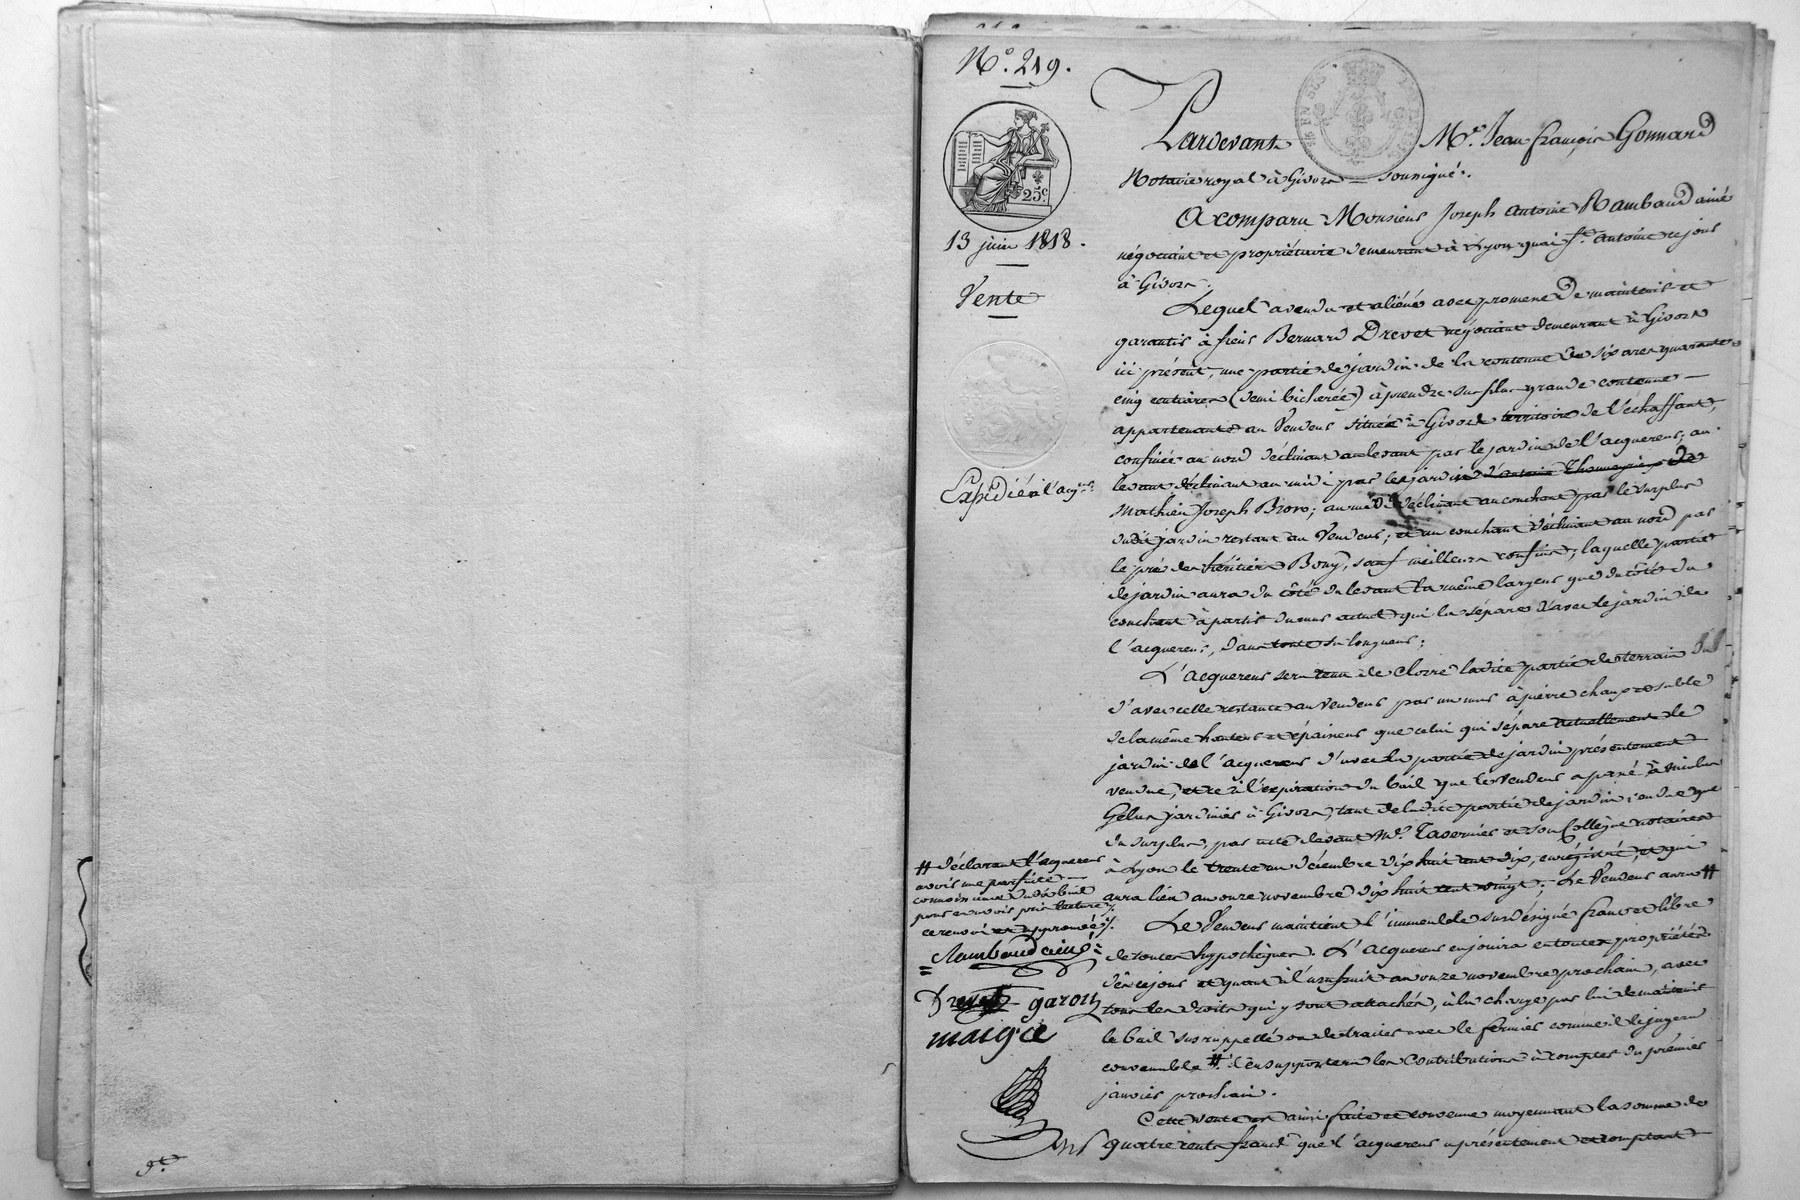 N.° 219.
25.c
13 juin 1818.
Vente
Expédié à l'acq.r
Pardevant M.e Jean françois Gonnard
Notaire royal à Givors soussigné.
A comparu Monsieur Joseph Antoine Rambaud ainé
négociant et propriétaire demeurant à Lyon quai S.t Antoine de jour
à Givors.
Lequel a vendu et aliéné avec promesse de maintenir et
garantir à sieur Bernard Drevet négociant demeurant à Givors
ici présent, une partie de jardin de la contenue de six ares quarante
cinq centiares (demi bicherée) à prendre sur plus grande contenue
appartenante au Vendeur située à Givors territoire de l'échaffant,
confinée au nord déclinant au levant par le jardin de l'acquereur; au
levant déclinant au midi par le jardin de
Mathieu Joseph Brovo; au midi déclinant au couchant par le surplus
dudit jardin restant au Vendeur; et au couchant déclinant au nord par
le pré des héritiers Bony, sauf meilleurs confins; laquelle partie
de jardin aura du côté du levant la même largeur que du côté du
couchant à partir du mur actuel qui la sépare d'avec le jardin de
l'acquereur, dans toute sa longueur;
L'acquereur sera tenu de clorre ladite partie de terrain
d'avec celle restante au Vendeur par un mur à pierre chaux et sable
de la même hauteur et épaisseur que celui qui sépare actuellement le
jardin de l'acquereur d'avec la partie de jardin présentement
vendue, et ce à l'expiration du bail que le Vendeur a passé à Nicolas
Gelas jardinier à Givors, tant de ladite partie de jardin vendue que
du surplus, par acte devant M.e Tavernier et son Collègue notaires
à Lyon le trente un décembre dix huit cent dix, enregistré, et qui
aura lieu au onze novembre dix huit cent vingt; Le Vendeur aura #
Le Vendeur maintient l'immeuble susdésigné franc et libre
de toutes hypothèques. L'acquereur en jouira en toute propriété
dès ce jour et quant à l'usufruit au onze novembre prochain, avec
tous les droits qui y sont attachés, à la charge par lui de maintenir
le bail susrappellé ou de traiter avec le fermier comme il le jugera
convenable #. il en supportera les Contributions à compter du premier
janvier prochain.
Cette vente est ainsi faite et convenue moyennant la somme de
quatre cents francs que l'acquereur a présentement et comptant
# déclarant l'acquereur
avoir une parfaite
connoissance dudit bail
pour en avoir pris lecture ;
ce renvoi est approuvé ;/.
Rambaud ainé
Drevet garon
maigre